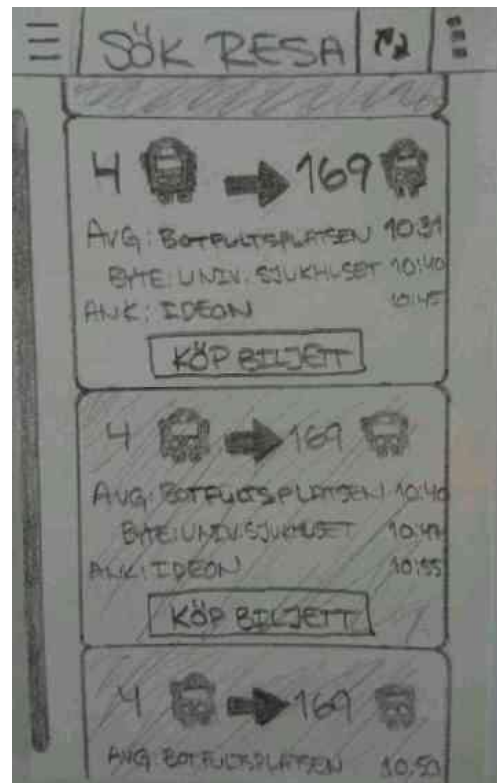 SÖK RESA
4 169
AVG: BOTFULTSPLATSEN 10:31
BYTE: UNIV. SJUKHUSET 10:40
ANK: IDEON 10:45
KÖP BILJETT
4 169
AVG: BOTFULTSPLATSEN 10:40
BYTE: UNIV. SJUKHUSET
ANK: IDEON 10:55
KÖP BILJETT
4 169
AVG: BOTFULTSPLATSEN 10:50